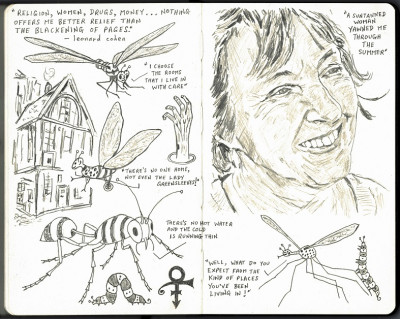 "RELIGION, WOMEN, DRUGS, MONEY... NOTHING
OFFERS ME BETTER RELIEF THAN
THE BLACKENING OF PAGES."
- leonard cohen
"I CHOOSE
THE ROOMS
THAT I LIVE IN
WITH CARE"
"THERE'S NO ONE HOME,
NOT EVEN THE LADY
GREENSLEEVES"
THERE'S NO HOT WATER
AND THE COLD
IS RUNNING THIN
"A SUNTANNED
WOMAN
YAWNED ME
THROUGH
THE
SUMMER"
"WELL, WHAT DO YOU
EXPECT FROM THE
KIND OF PLACES
YOU'VE BEEN
LIVING IN!"